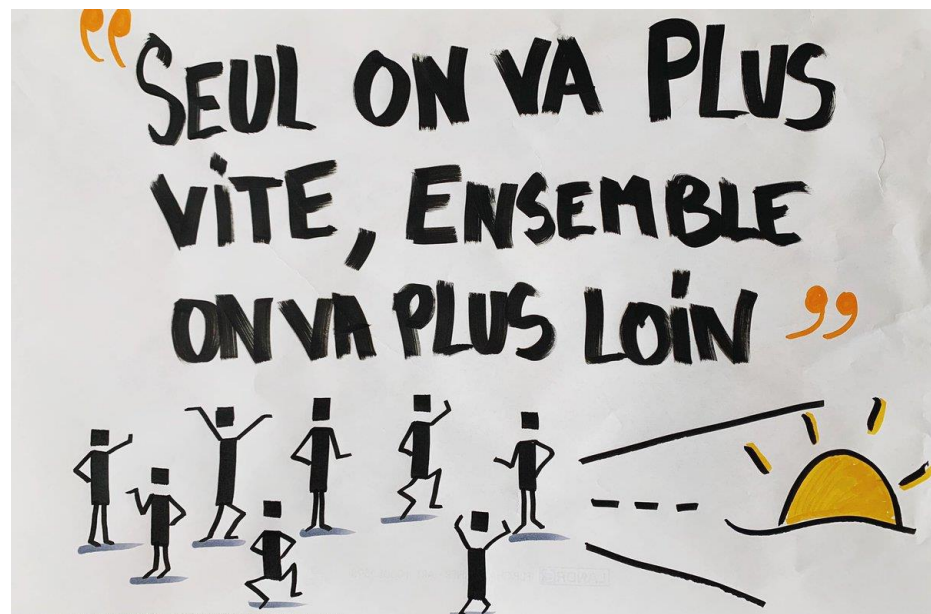 “SEUL ON VA PLUS
VITE, ENSEMBLE
ON VA PLUS LOIN”